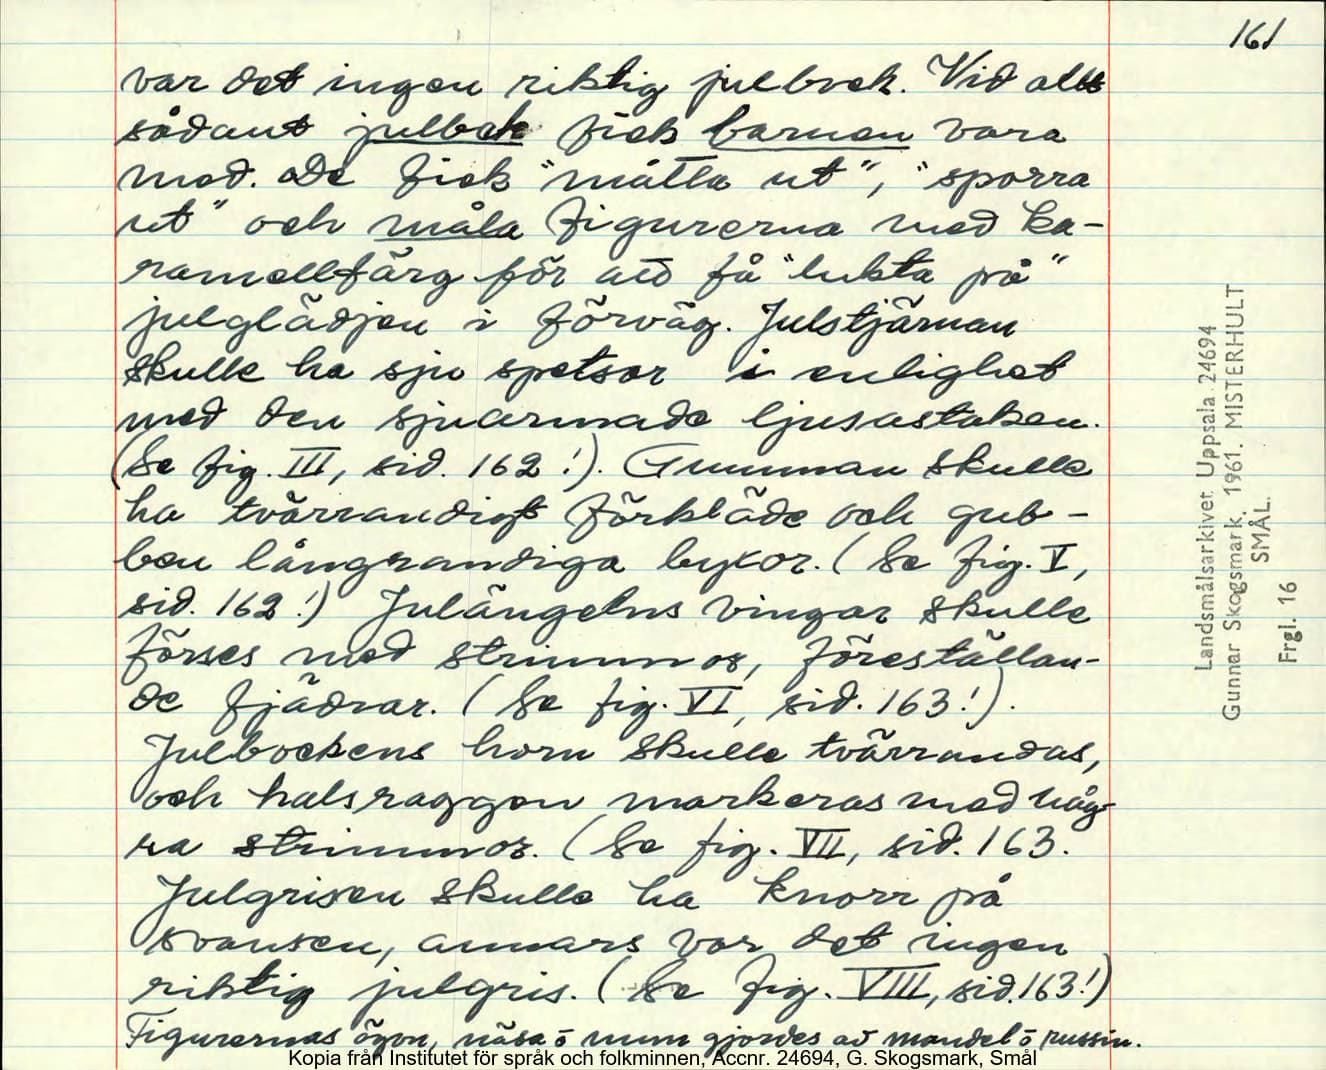 161
var det ingen riktig julbock. Vid allt
sådant julbak fick barnen vara
med. De fick "måtta ut", "sporra
ut" och måla figurerna med ka-
ramellfärg för att få "lukta på"
julglädjen i förväg. Julstjärnan
skulle ha sju spetsar i enlighet
med den sjuarmade ljusastaken.
(Se fig. III, sid. 162!). Gumman skulle
ha tvärrandigt förkläde och gub-
ben långrandiga byxor. (Se fig. V,
sid. 162!) Julängelns vingar skulle
förses med strimmor, föreställan-
de fjädrar. (Se fig. VI, sid. 163!).
Julbockens horn skulle tvärrandas,
och halsraggen markeras med någ-
ra strimmor. (Se fig. VII, sid. 163.
Julgrisen skulle ha knorr på
svansen, annars var det ingen
riktig julgris. (Se fig. VIII, sid. 163!)
Figurernas ögon, näsa o mun gjordes av mandel o russin.
Landsmålsarkivet Uppsala 24694
Gunnar Skogsmark. 1961. MISTERHULT
SMÅL.
Frgl. 16
Kopia från Institutet för språk och folkminnen, Accnr. 24694, G. Skogsmark, Smål